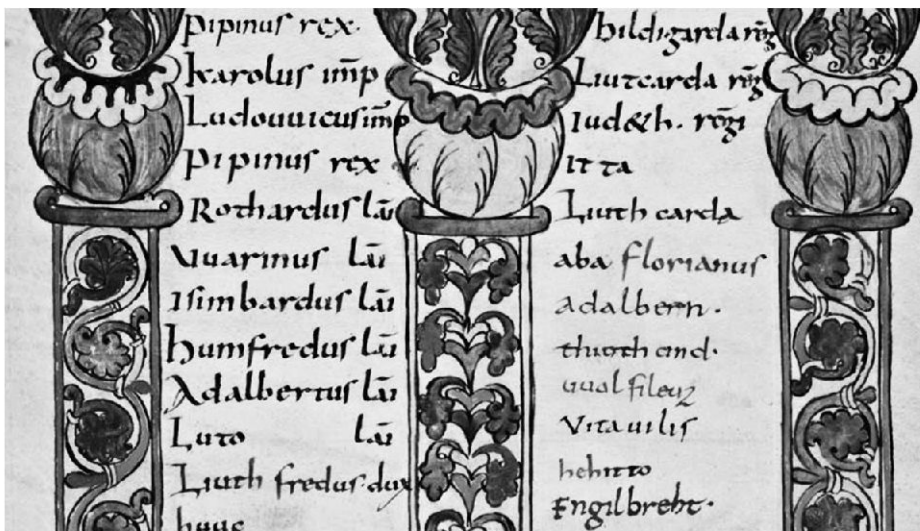 pipinus rex.
karolus imp
Ludouuicus imp
pipinus rex
Rothardus lai
Uuarinus lai
Isimbardus lai
hunfredus lai
Adalbertus lai
Luto lai
Liuth fredus dux
hildigarda reg
Liutcarda reg
Iud&h. regi
It ta
Liuth carda
aba florianus
adalbern.
uuolfleoz
Vitauilis
hehitto
Engilbreht.